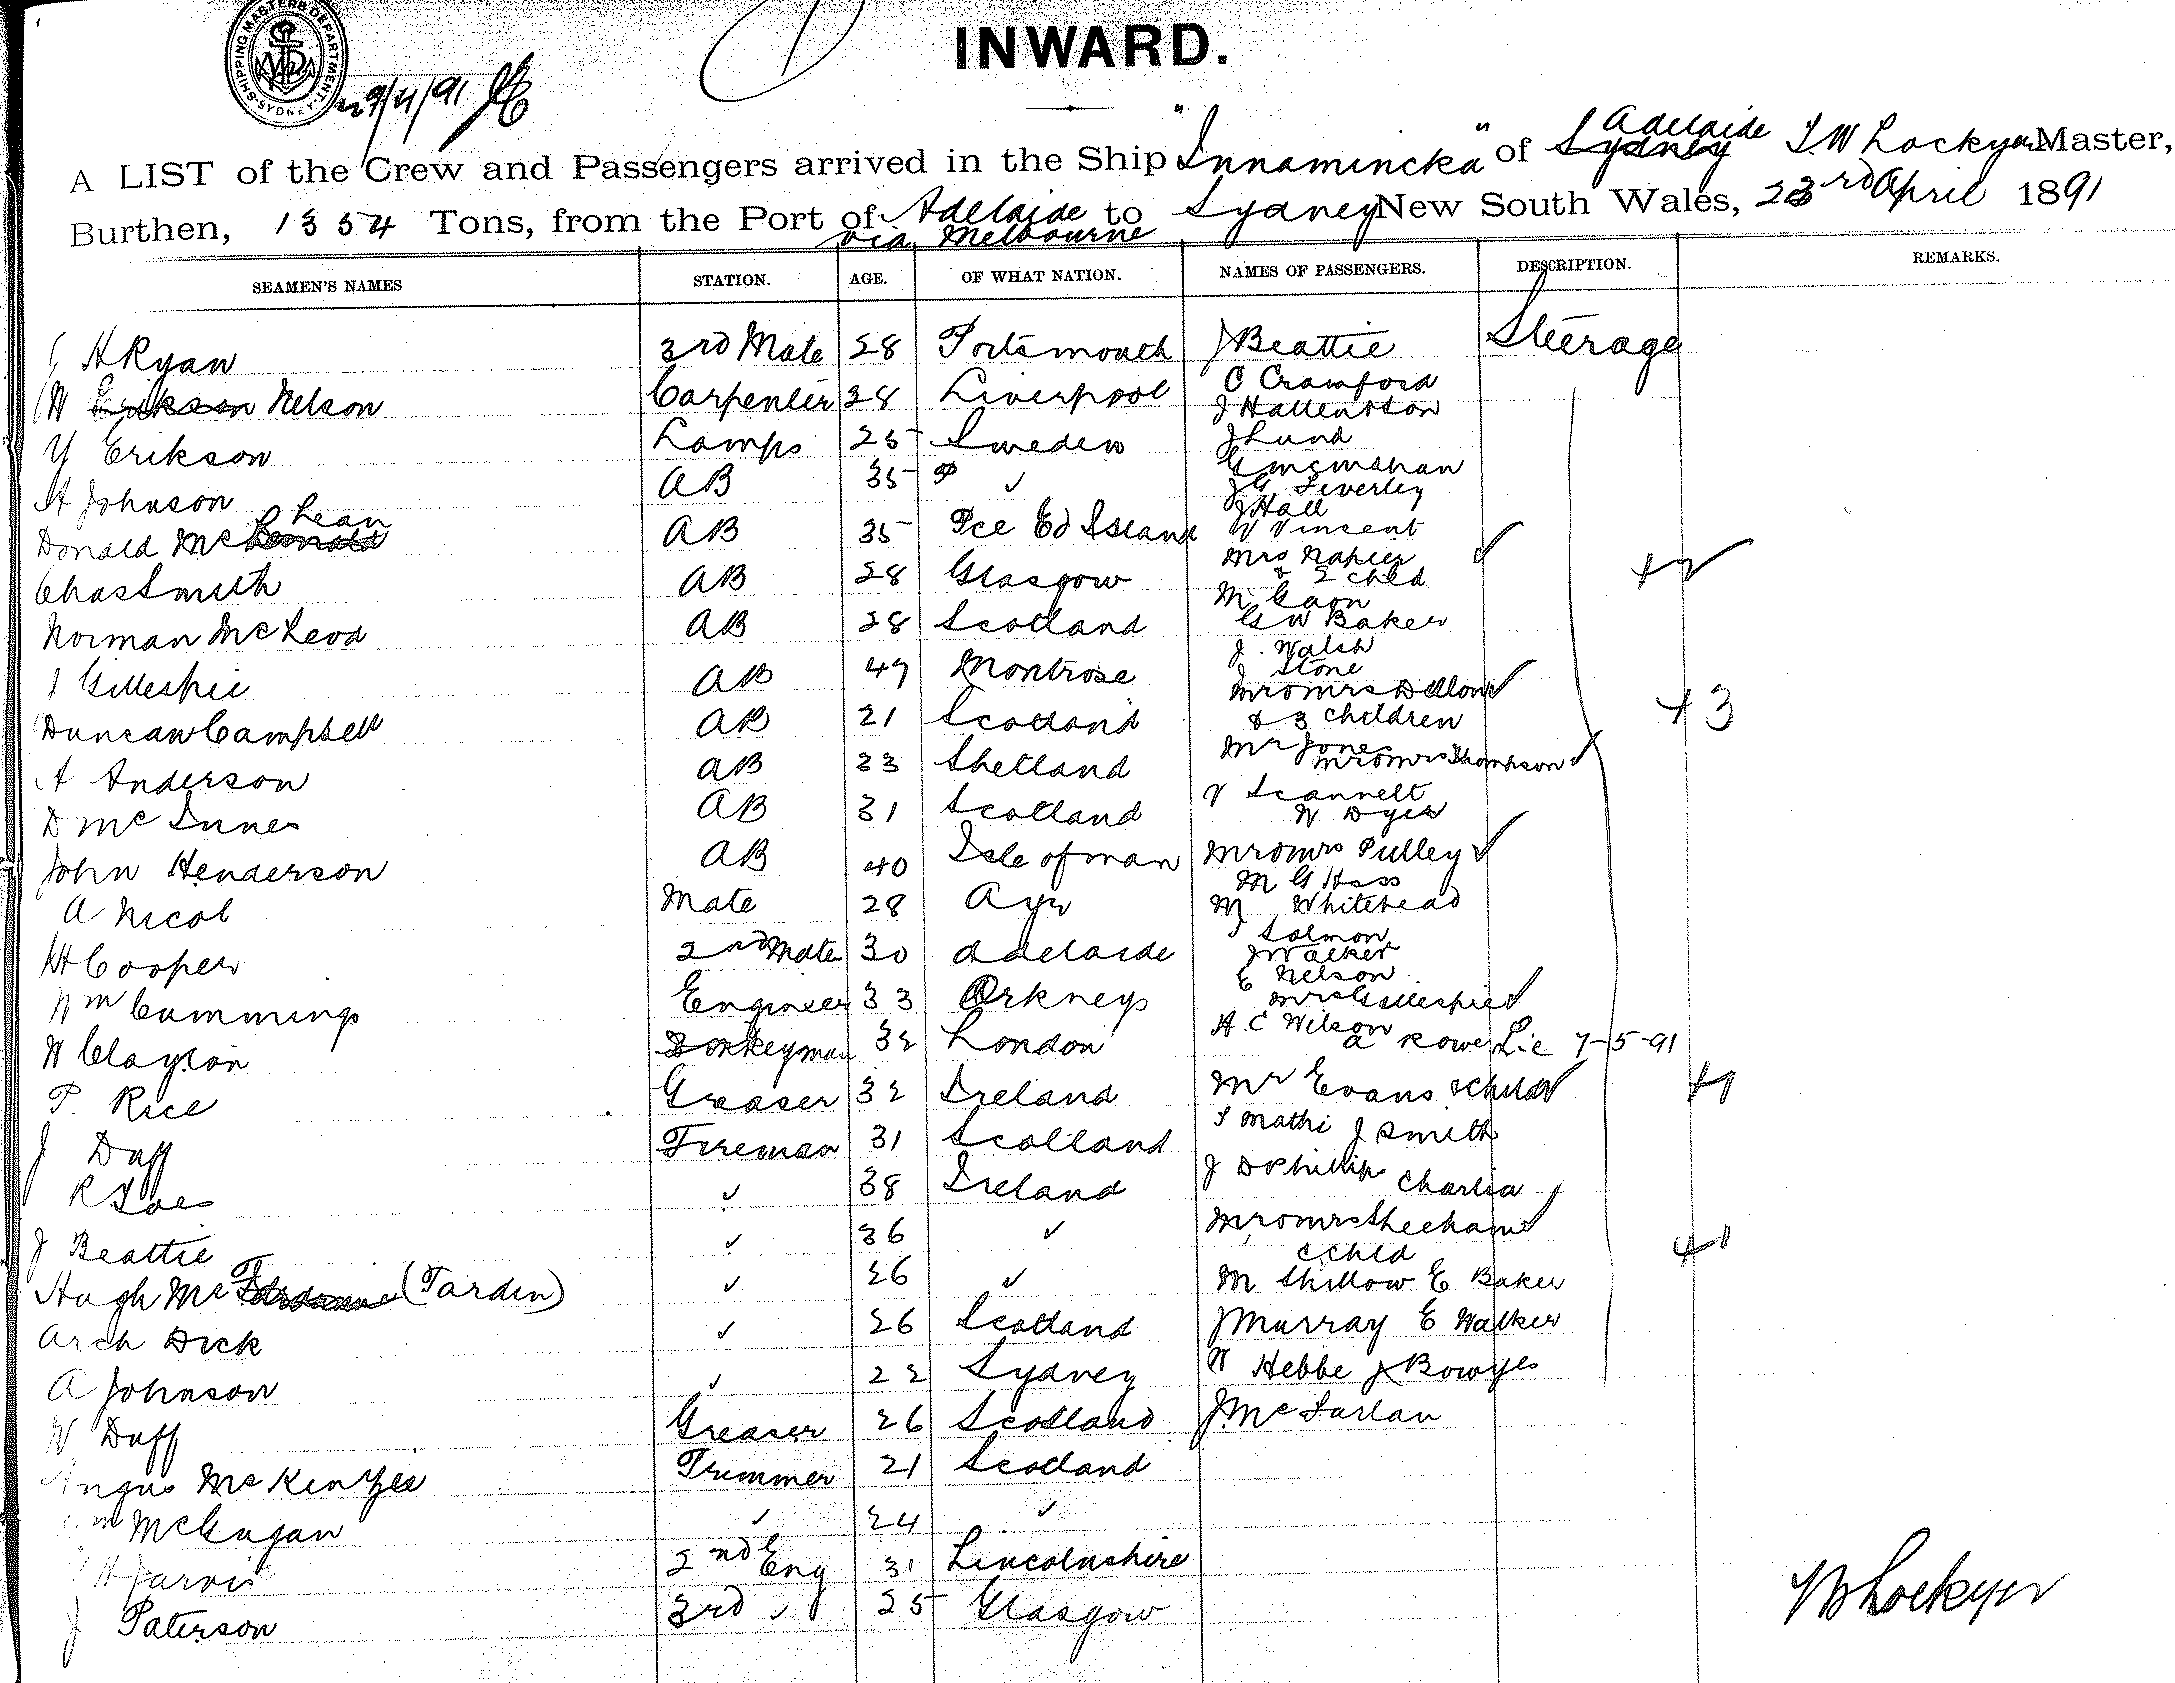 SHIPPING MASTERS DEPARTMENT SYDNEY
INWARD.
A LIST of the Crew and Passengers arrived in the Ship "Innamincka" of Sydney Adelaide T W Lockyer Master,
Burthen, 1354 Tons, from the Port of Adelaide via Melbourne to Sydney New South Wales, 23rd April 1891
SEAMEN'S NAMES STATION. AGE. OF WHAT NATION. NAMES OF PASSENGERS. DESCRIPTION. REMARKS.
H Ryan 3rd Mate 28 Portsmouth J Beattie Steerage
W Erikson Nelson Carpenter 28 Liverpool C Crawford
J Hallenston
Y Erikson Lamps 25 Sweden J Lund
A Johnson AB 35 ✓ G McMahan
J G Liverley
J Hall
Donald McLean AB 35 Pce Ed Island W Vincent
Mrs Napier ✓
& 2 chld +2
Chas Smith AB 28 Glasgow M Gaon
Norman McLeod AB 28 Scotland G W Baker
J Walsh
J Stone
J Gillespie AB 47 Montrose Mr & Mrs Dillon ✓
Duncan Campbell AB 21 Scotland & 3 children +3
A Anderson AB 23 Shetland Mr Jones
Mr & Mrs Thompson ✓
D McInnes AB 31 Scotland Scannell
W Dyer
John Henderson AB 40 Isle of man Mr & Mrs Pulley ✓
M G Hass
A Nicol Mate 28 Ayr M Whitehead
Solmon
H Cooper 2nd Mate 30 Adelaide J Walker
E Nelson
Wm Cummings Engineer 33 Orkneys Mrs Gillespie ✓
W Clayton Donkeyman 32 London H C Wilson
A Rowe Lic 7-5-91
P. Rice Greaser 32 Ireland Mr Evans & child ✓ +1
J Duff Fireman 31 Scotland Mathi J Smith
R ✓ 38 Ireland J D Phillip Charlia
J Beattie ✓ 36 ✓ Mr & Mrs Sheehan ✓
& chld +1
Hugh Mc (Tardin) ✓ 26 ✓ M Shillow E Baker
Arch Dick ✓ 26 Scotland J Murray E Walker
A Johnson ✓ 22 Sydney W Hebbe J Bowyer
W Duff Greaser 26 Scotland J McFarlan
Angus McKenzie Trimmer 21 Scotland
Wm McGugan ✓ 24 ✓
H Jarvis 2nd Eng 31 Lincolnshire
J Paterson 3rd ✓ 25 Glasgow
Lockyer